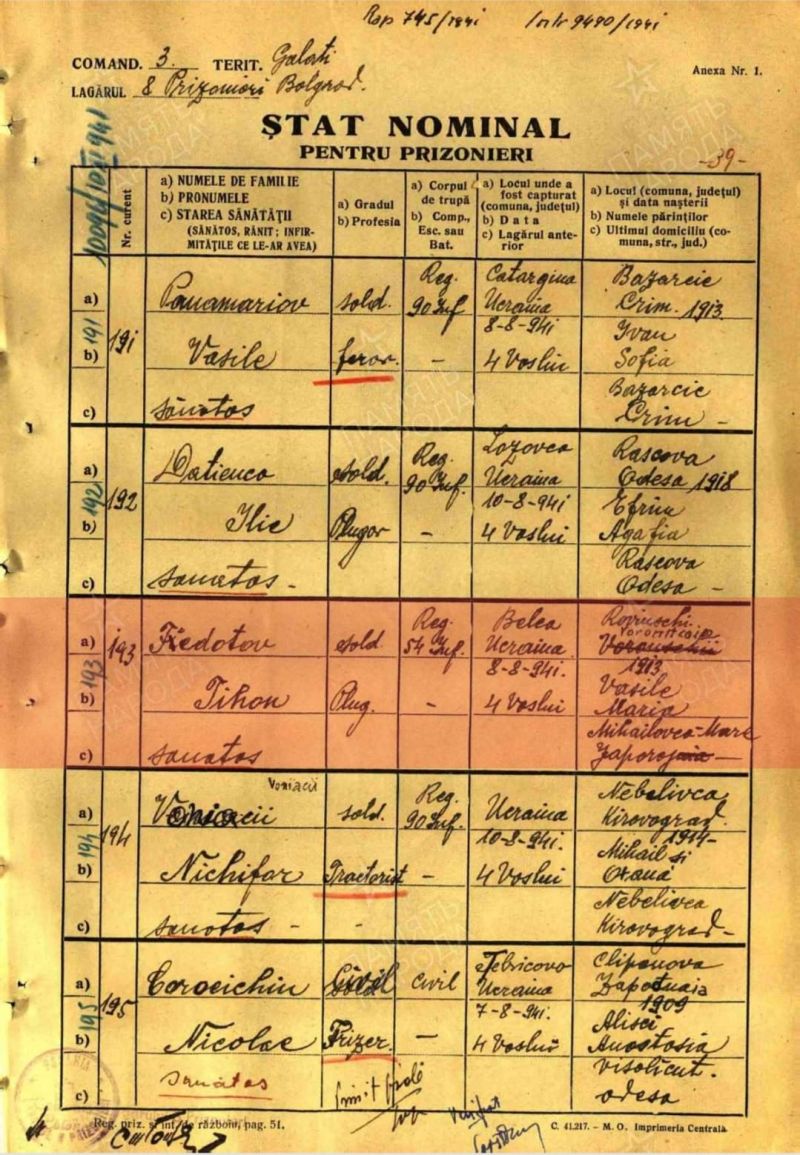 Rap 745/1941 Intr 9490/1941
COMAND. 3. TERIT. Galati
LAGĂRUL 8 Prizonieri Bolgrad.
Anexa Nr. 1.
ȘTAT NOMINAL
PENTRU PRIZONIERI
-39-
Nr. curent
a) NUMELE DE FAMILIE
b) PRONUMELE
c) STAREA SĂNĂTĂȚII
(SĂNĂTOS, RĂNIT; INFIR-
MITĂȚILE CE LE-AR AVEA)
a) Gradul
b) Profesia
a) Corpul
de trupă
b) Comp.,
Esc. sau
Bat.
a) Locul unde a
fost capturat
(comuna, județul)
b) Data
c) Lagărul ante-
rior
a) Locul (comuna, județul)
și data nașterii
b) Numele părinților
c) Ultimul domiciliu (co-
muna, str., jud.)
a) 191 Panamariov sold. Reg. 90 Inf Catargina Ucraina Bazarcic Crim. 1913
191
b) Vasile feror. - 8-8-941 4 Vaslui Ivan Sofia
c) sănatos Bazarcic Crim -
a) 192 Datienco sold. Reg. 90 Inf. Lozovca Ucraina Rascova Odesa 1918
192
b) Ilie Plugar - 10-8-941 4 Vaslui Efrim Agafia
c) sanatos - Rascova Odesa -
a) 193 Fiedotov sold Reg. 54 Inf. Belca Ucraina
193
b) Tihon Plug. - 8-8-941. 4 Vaslui 1913 Vasile Maria
c) sanatos Mihailovca-Mare Zaporojnaia -
Voniacii
a) 194 sold. Reg. 90 Inf. Ucraina Nebelivca Kirovograd.
194
b) Nichifor Tractorist - 10-8-941. 4 Vaslui 1914- Mihail si Oxana
c) sanatos - - Nebelivca Kirovograd -
a) 195 Corocichin Civil Civil Ucraina 1909
195
b) Nicolae Frizer. - 7-8-941. 4 Vaslui Alisei Anastasia
c) sanatos odesa
Reg. priz. și inf. de războiu, pag. 51.
C. 41.217. - M. O. Imprimeria Centrală.
ПАМЯТЬ
НАРОДА